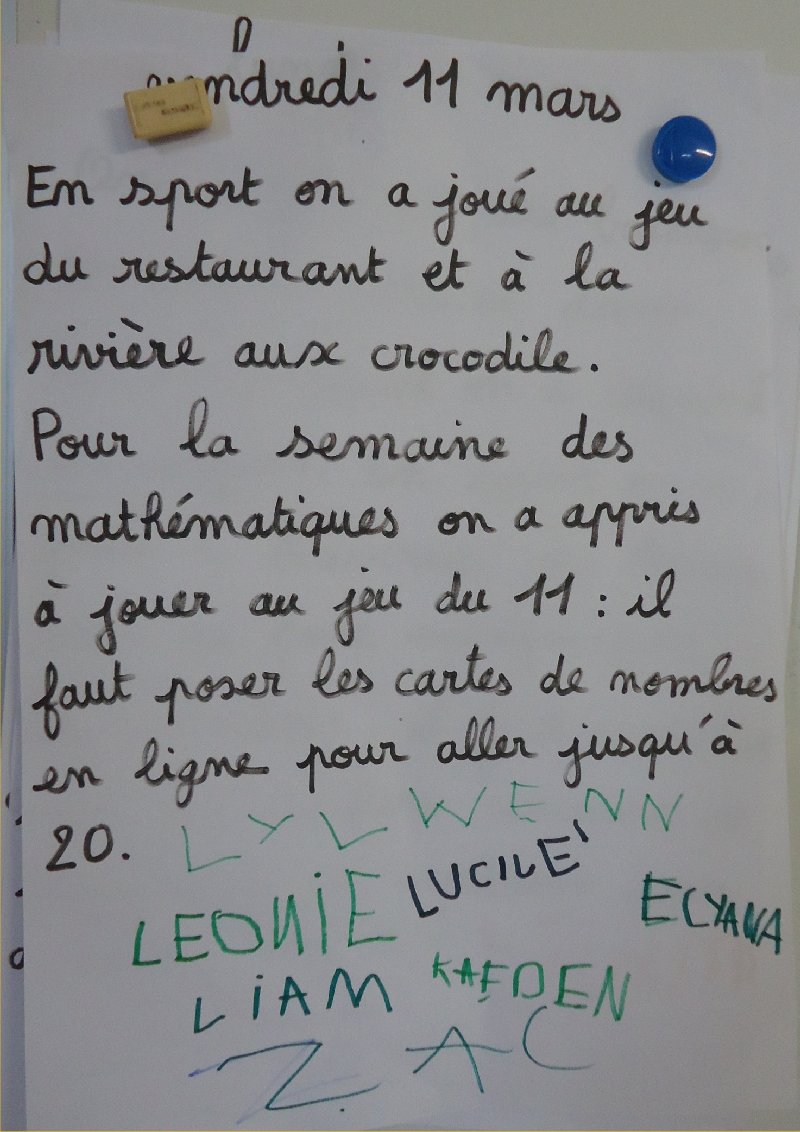 vendredi 11 mars
En sport on a joué au jeu
du restaurant et à la
rivière aux crocodile.
Pour la semaine des
mathématiques on a appris
à jouer au jeu du 11 : il
faut poser les cartes de nombres
en ligne pour aller jusqu'à
20.
LYLWENN
LUCILE
LEONIE
ELYANA
LiAM
KAEDEN
ZAC